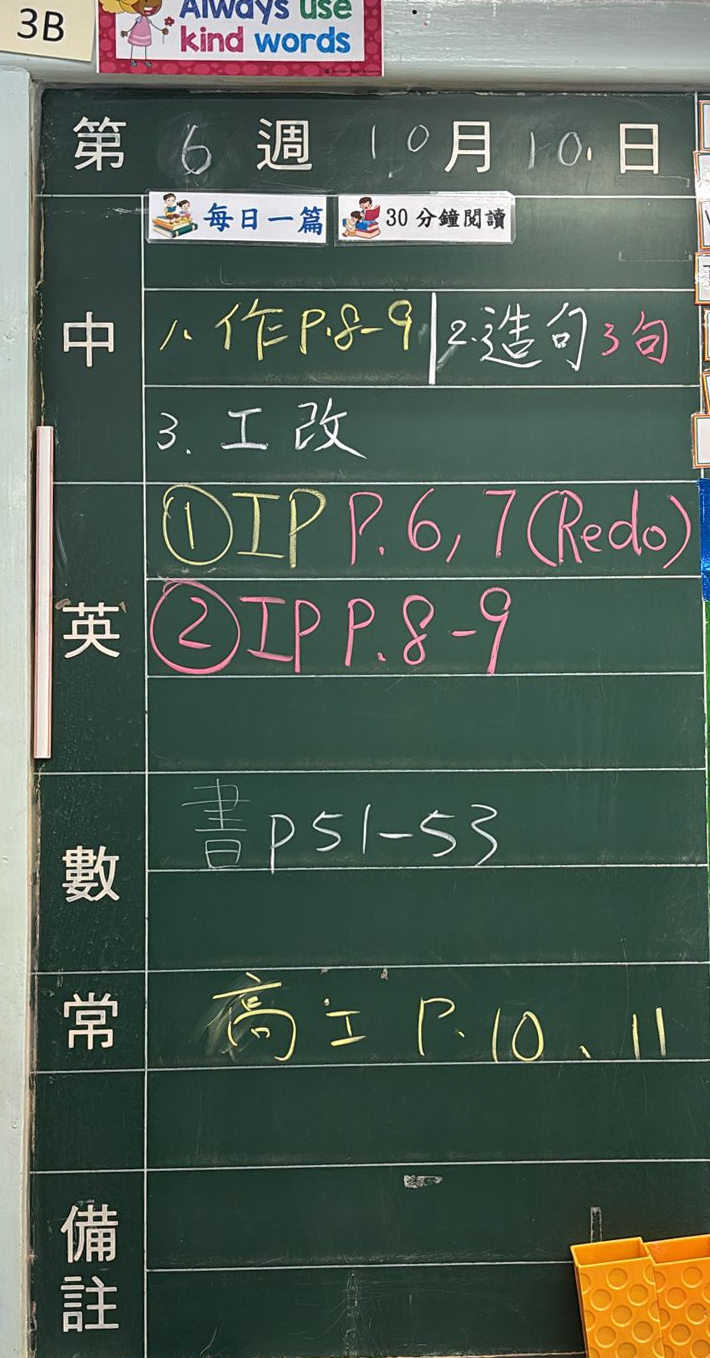 3B
Always use
kind words
第 6 週 10月10日
每日一篇 30分鐘閱讀
中
1. 作 P.8-9 | 2. 造句3句
3. 工改
英
① IP P.6, 7 (Redo)
② IP P.8-9
數
書 P51-53
常
高工 P.10、11
備註